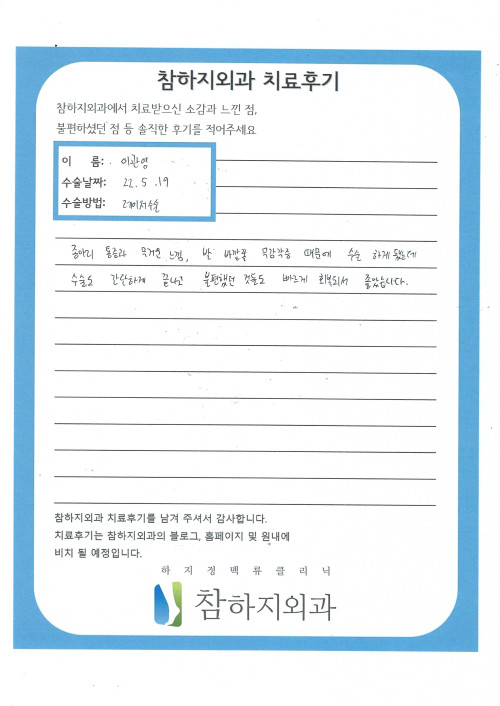 참하지외과 치료후기
참하지외과에서 치료받으신 소감과 느낀 점,
불편하셨던 점 등 솔직한 후기를 적어주세요
이 름: 이관영
수술날짜: 22. 5. 19
수술방법: 레이저수술
종아리 통증과 무거운 느낌, 발 바깥쪽 무감각증 때문에 수술 하게 됐는데
수술도 간단하게 끝나고 불편했던 것들도 빠르게 회복되서 좋았습니다.
참하지외과 치료후기를 남겨 주셔서 감사합니다.
치료후기는 참하지외과의 블로그, 홈페이지 및 원내에
비치 될 예정입니다.
하지정맥류클리닉
참하지외과